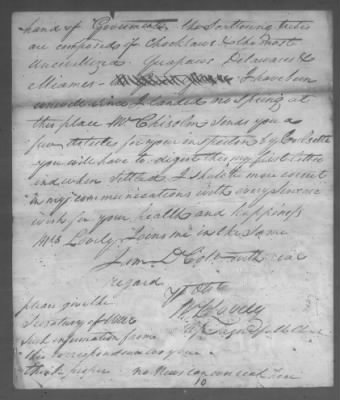 hand of Government the Surrounding tribes
are composed of Chocktaws & the most
Uncivilized Quapaws Delawares &
Miames - I have been
unwell since I landed no Spring at
this place Mr Chisolm sends you a
few articles for your inspection by
you will have to digest this my first letter
and when settled I shall be more correct
in my communications with every Sincere
wish for your health and happiness
Mrs Lovely Joins me in the same
I am Dr Colo with real
regard
Yr Obt
please give the
Wm L Lovely
Secretary of War
such information from
this correspondence as you
think proper no News can can reach here
10